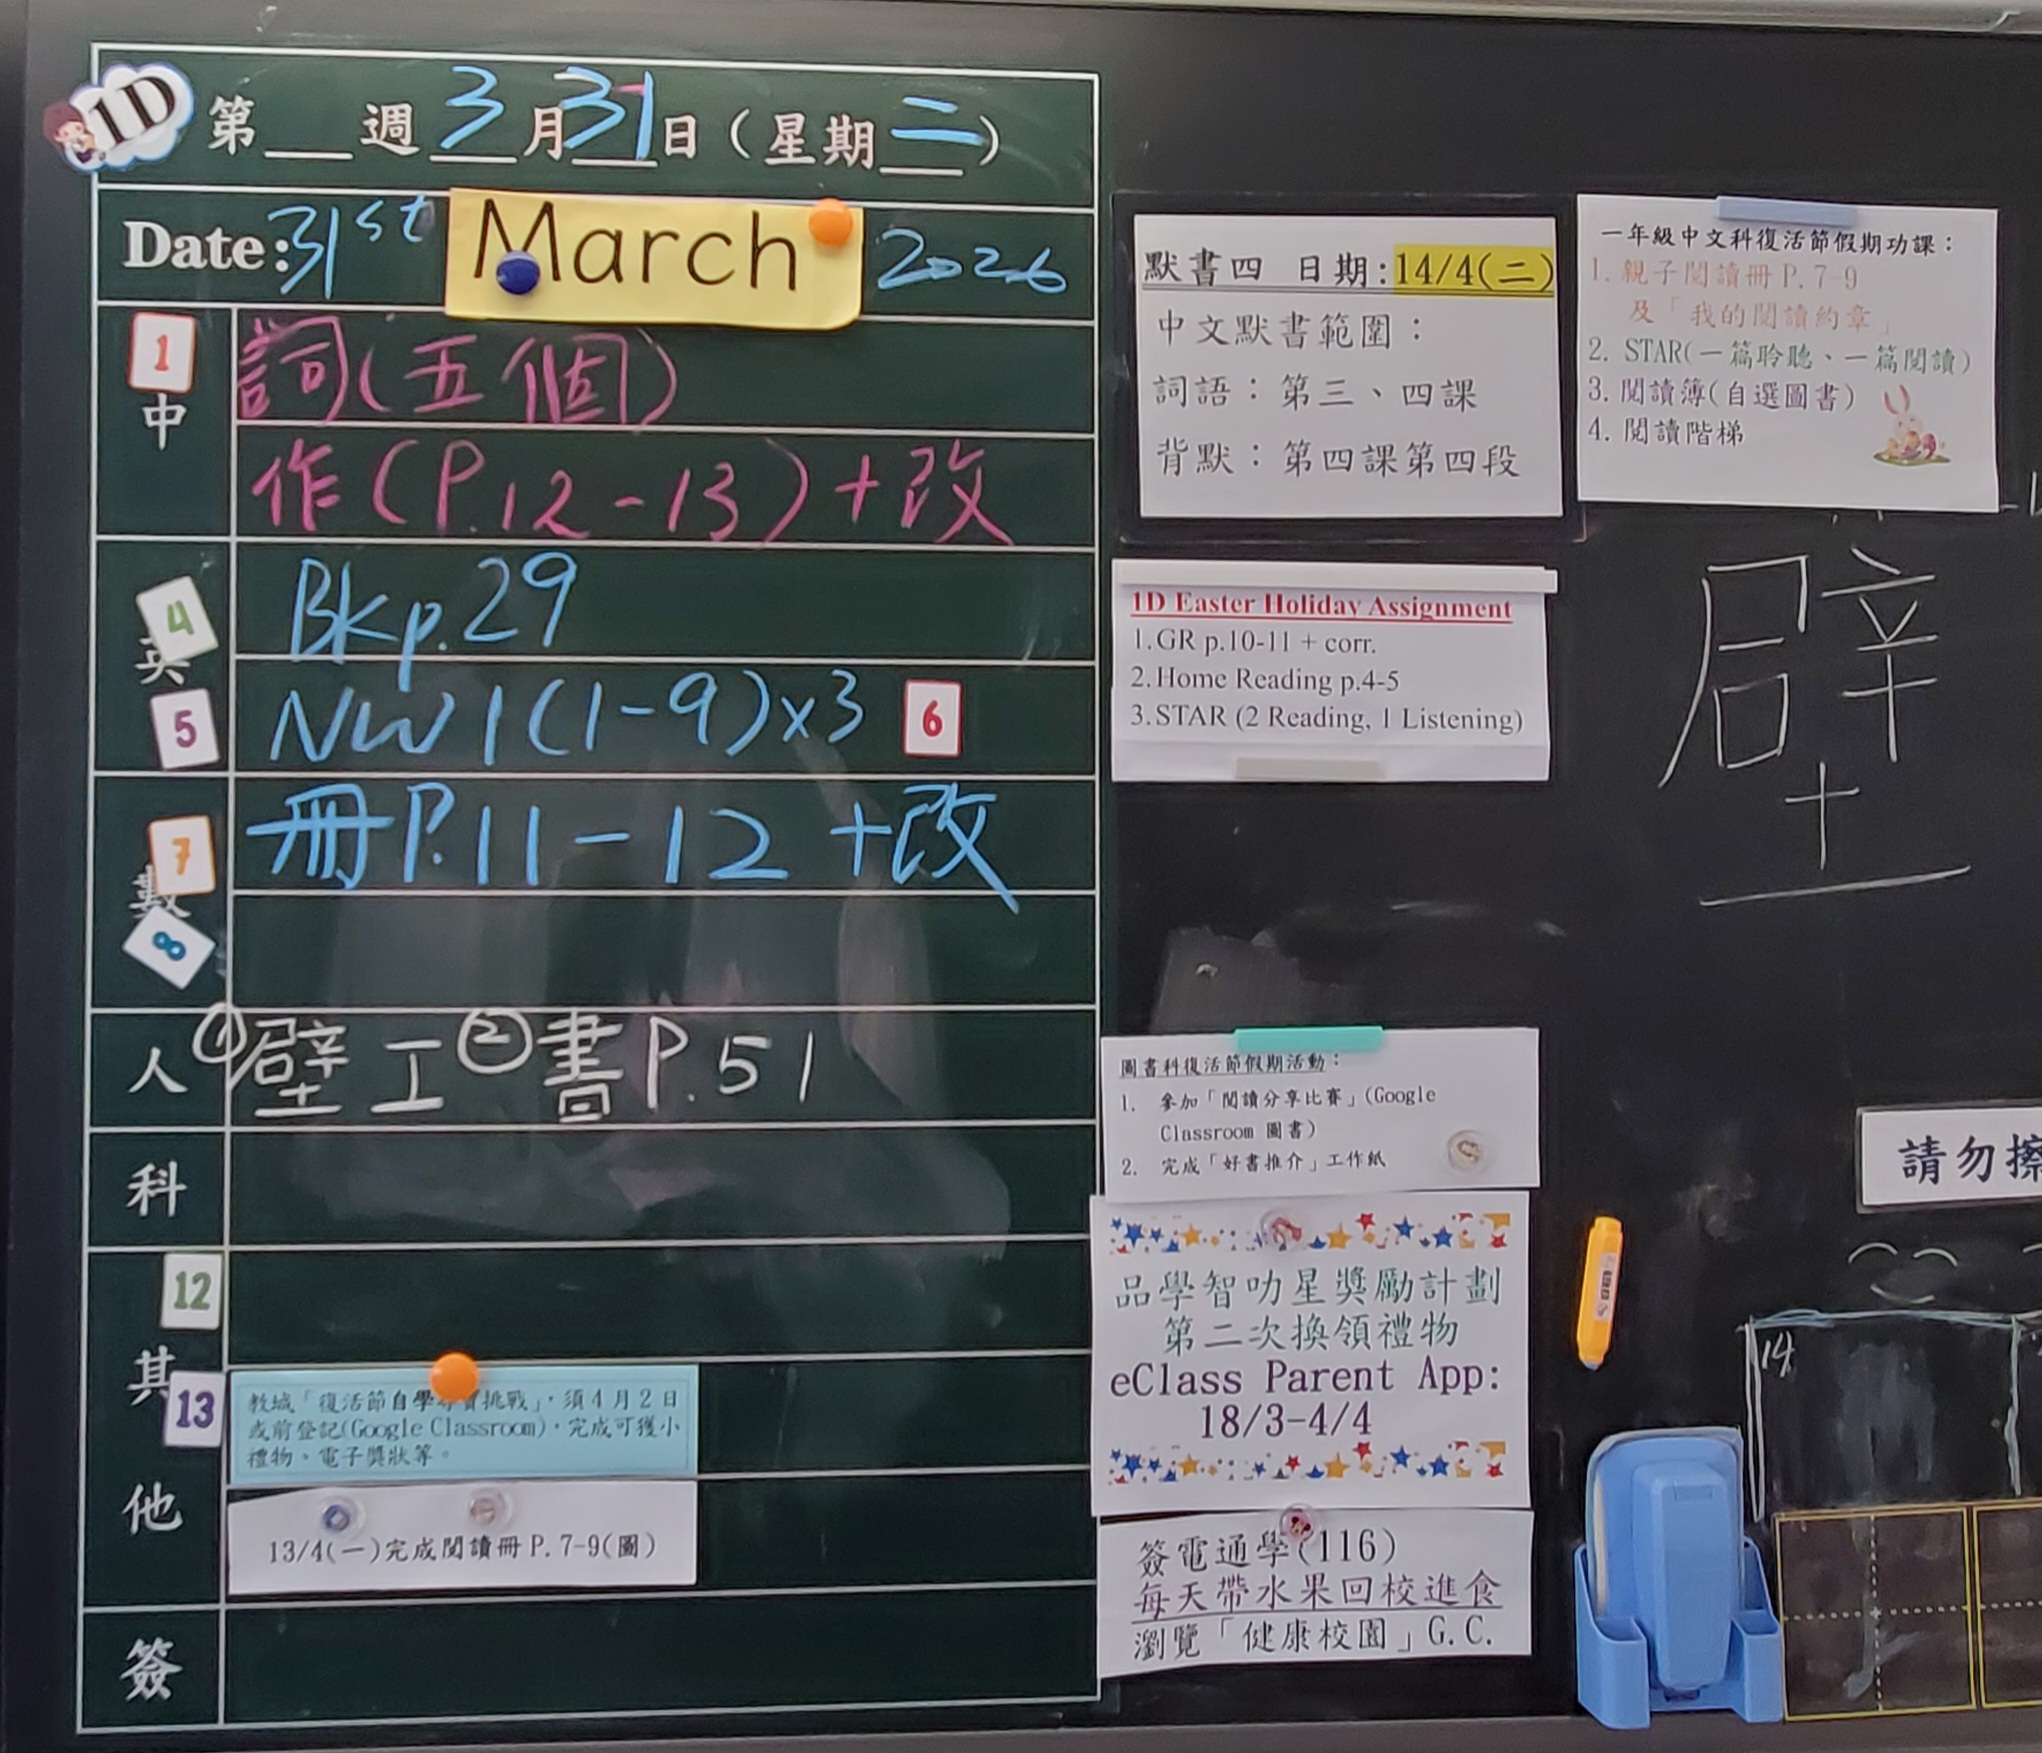 1D 第__週 3月31日(星期二)
Date: 31st March 2026
1 中 詞(五個)
作(P.12-13)+改
4 英 Bk p.29
5 NW1(1-9)x3 6
7 數 冊P.11-12+改
8
人 ①壁工②書P.51
科
12
其
13 教城「復活節自學 挑戰」,須4月2日
或前登記(Google Classroom),完成可獲小
禮物、電子獎狀等。
他
13/4(一)完成閱讀冊P.7-9(圖)
簽
默書四 日期:14/4(二)
中文默書範圍:
詞語:第三、四課
背默:第四課第四段
一年級中文科復活節假期功課:
1. 親子閱讀冊P.7-9
及「我的閱讀約章」
2. STAR(一篇聆聽、一篇閱讀)
3. 閱讀簿(自選圖書)
4. 閱讀階梯
1D Easter Holiday Assignment
1.GR p.10-11 + corr.
2.Home Reading p.4-5
3.STAR (2 Reading, 1 Listening)
壁
圖書科復活節假期活動:
1. 參加「閱讀分享比賽」(Google
Classroom 圖書)
2. 完成「好書推介」工作紙
請勿擦
品學智叻星獎勵計劃
第二次換領禮物
eClass Parent App:
18/3-4/4
14
簽電通學(116)
每天帶水果回校進食
瀏覽「健康校園」G.C.